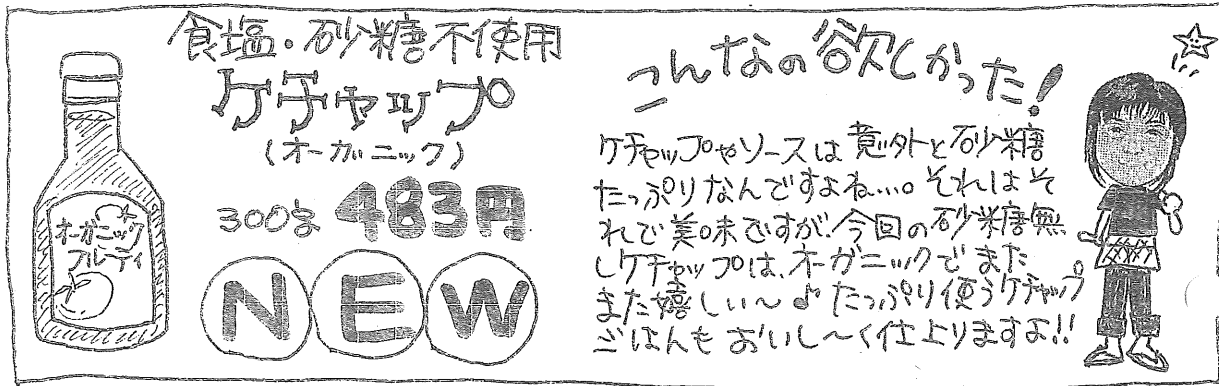 食塩・砂糖不使用
ケチャップ
(オーガニック)
300g 483円
NEW
オーガニック
フルーティ
こんなの欲しかった!
ケチャップやソースは意外と砂糖
たっぷりなんですよね…。それはそ
れで美味ですが、今回の砂糖無
しケチャップは、オーガニックでまた
また嬉しい〜♪たっぷり使うケチャップ
ごはんもおいし〜く仕上りますよ!!